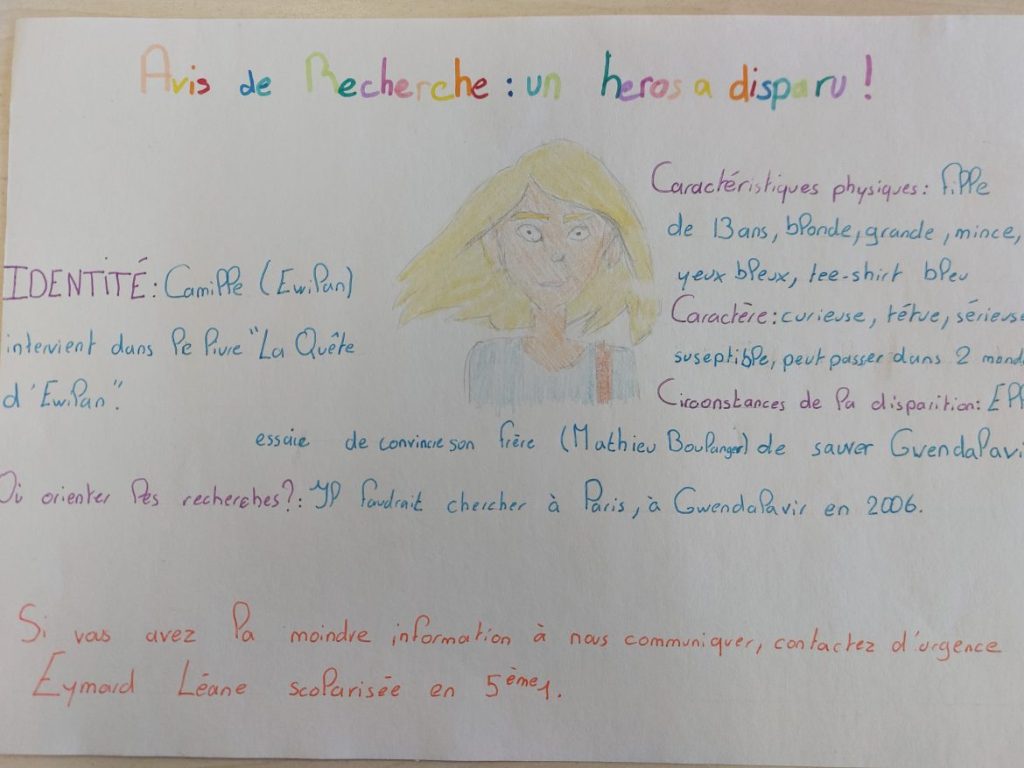 Avis de Recherche : un heros a disparu !
Caractéristiques physiques : fille
de 13 ans, blonde, grande, mince,
yeux bleux, tee-shirt bleu
IDENTITÉ : Camille (Ewilan)
Caractère : curieuse, têtue, sérieuse
intervient dans le livre "La Quête
suseptible, peut passer dans 2 mond
d'Ewilan".
Circonstances de la disparition : Ell
essaie de convincre son frère (Mathieu Boulanger) de sauver Gwendalavi
Où orienter les recherches ? : Il faudrait chercher à Paris, à Gwendalavir en 2006.
Si vous avez la moindre information à nous communiquer, contactez d'urgence
Eymard Léane scolarisée en 5ème1.